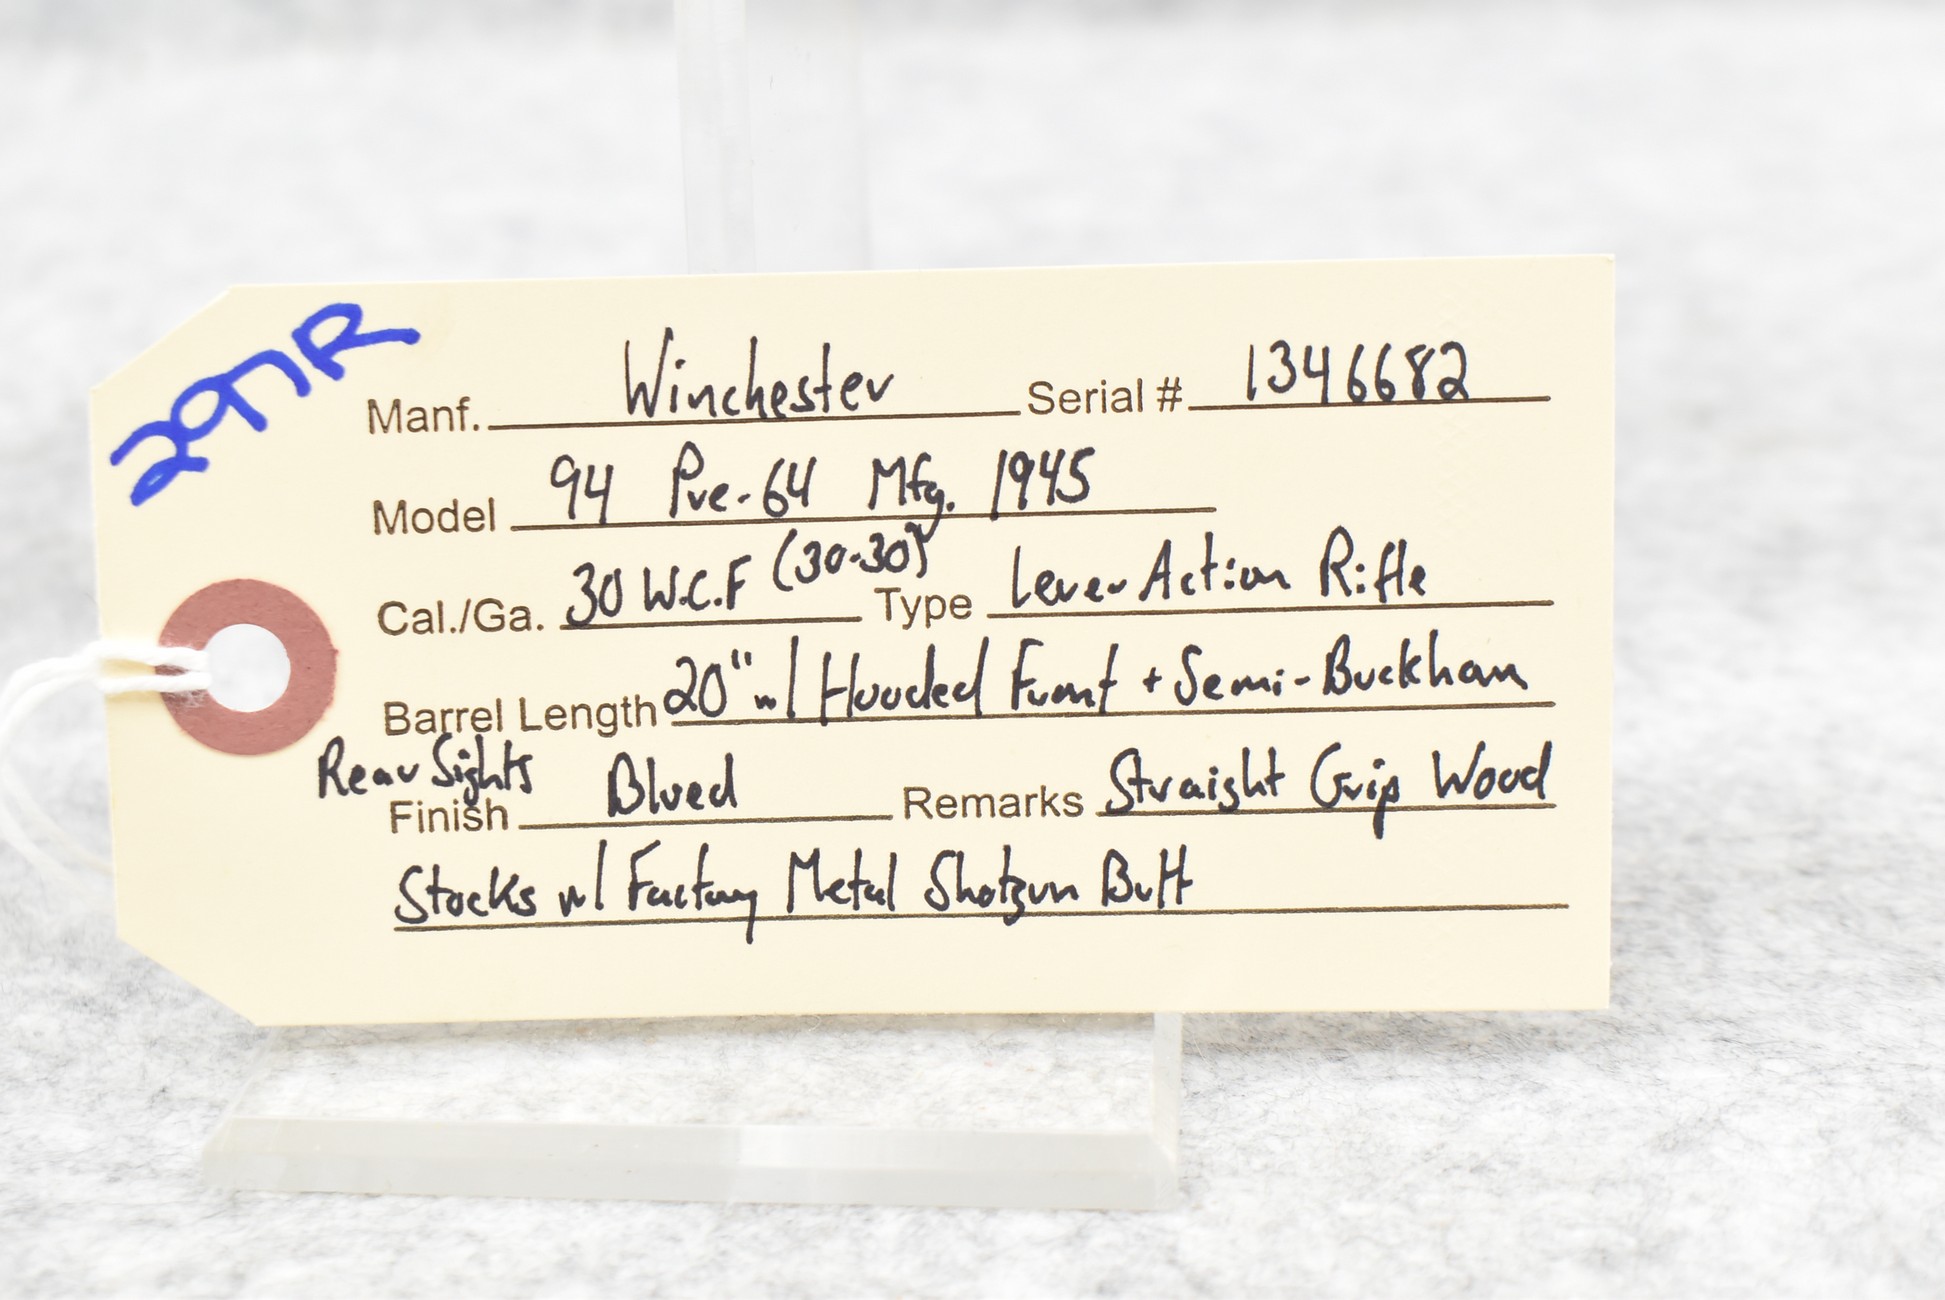 297R
Manf. Winchester Serial # 1346682
Model 94 Pre-64 Mfg. 1945
Cal./Ga. 30 W.C.F (30-30) Type Lever Action Rifle
Barrel Length 20" w/ Hooded Front + Semi-Buckhorn
Rear Sights
Finish Blued Remarks Straight Grip Wood
Stocks w/ Factory Metal Shotgun Butt